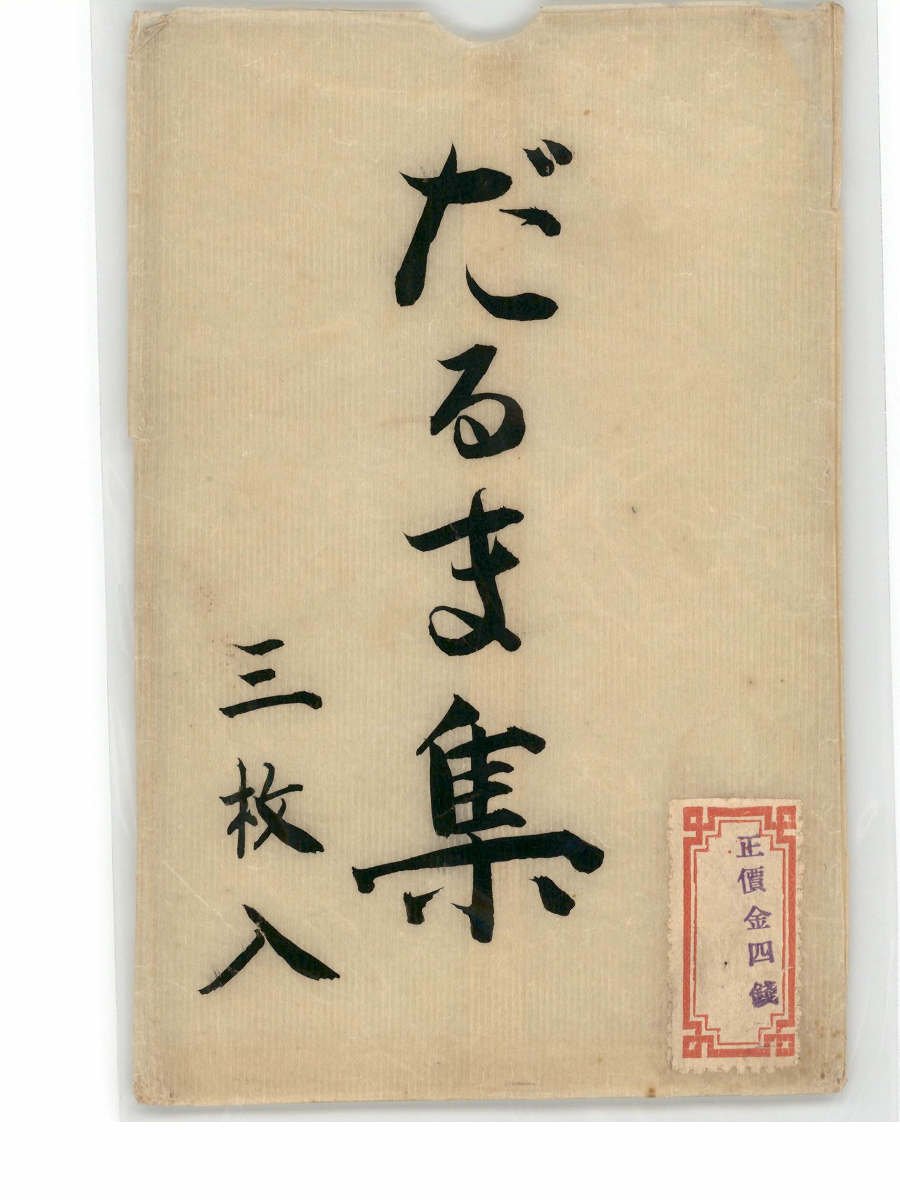 だるま集
三枚入
正價金四錢